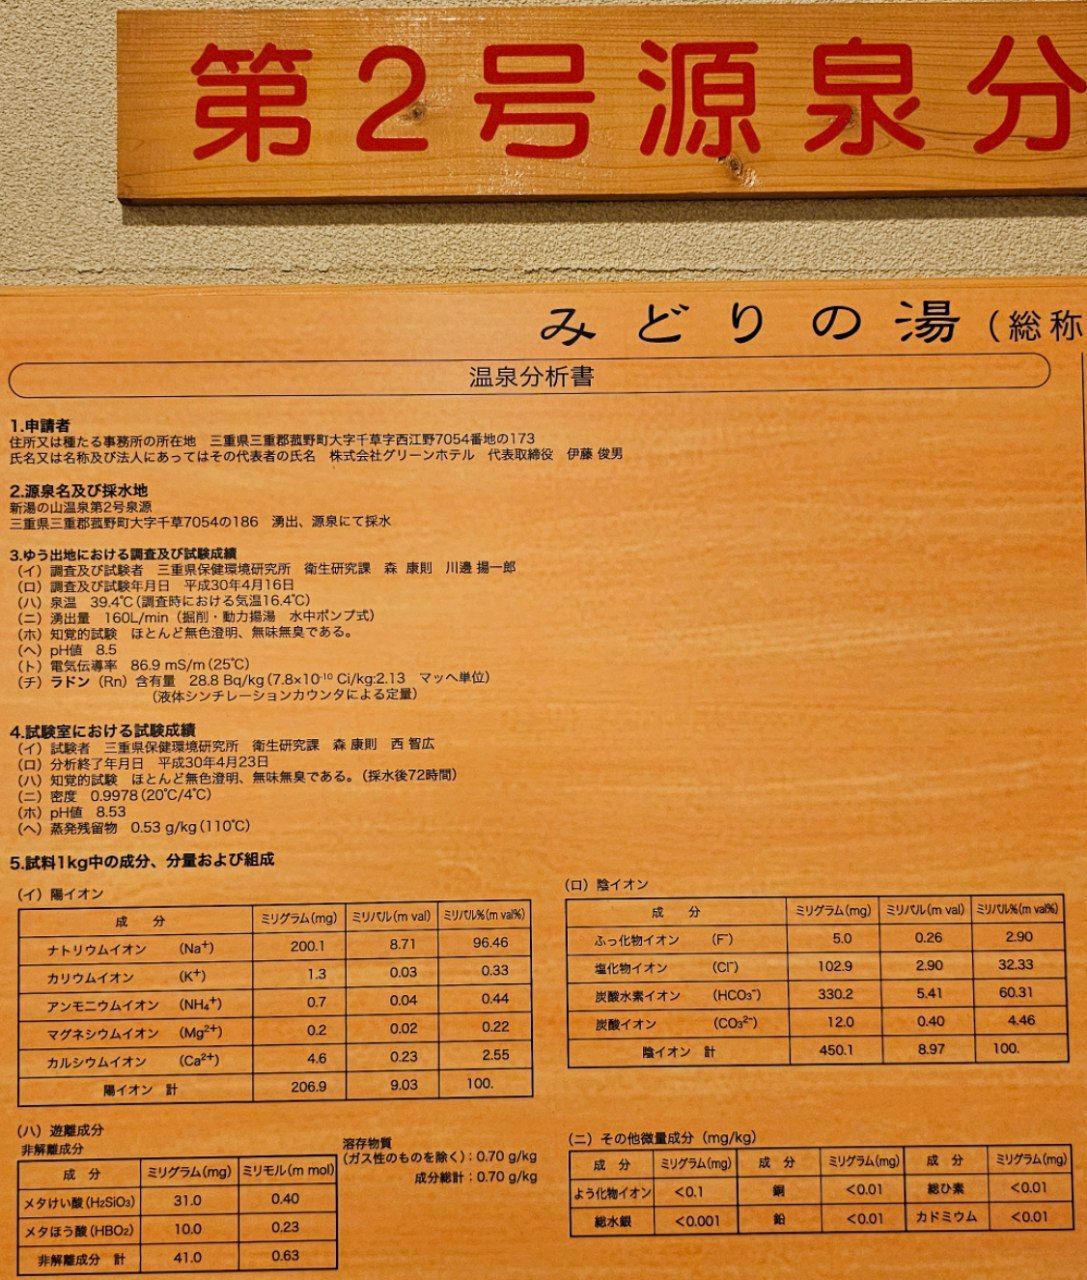 第2号源泉分
みどりの湯（総称
温泉分析書
1.申請者
住所又は種たる事務所の所在地　三重県三重郡菰野町大字千草字西江野7054番地の173
氏名又は名称及び法人にあってはその代表者の氏名　株式会社グリーンホテル　代表取締役　伊藤 俊男
2.源泉名及び採水地
新湯の山温泉第2号泉源
三重県三重郡菰野町大字千草7054の186　湧出、源泉にて採水
3.ゆう出地における調査及び試験成績
（イ）調査及び試験者　三重県保健環境研究所　衛生研究課　森 康則　川邉 揚一郎
（ロ）調査及び試験年月日　平成30年4月16日
（ハ）泉温　39.4℃（調査時における気温16.4℃）
（ニ）湧出量　160L/min（掘削・動力揚湯　水中ポンプ式）
（ホ）知覚的試験　ほとんど無色澄明、無味無臭である。
（ヘ）pH値　8.5
（ト）電気伝導率　86.9 mS/m（25℃）
（チ）ラドン（Rn）含有量　28.8 Bq/kg（7.8×10⁻¹⁰ Ci/kg:2.13　マッヘ単位）
（液体シンチレーションカウンタによる定量）
4.試験室における試験成績
（イ）試験者　三重県保健環境研究所　衛生研究課　森 康則　西 智広
（ロ）分析終了年月日　平成30年4月23日
（ハ）知覚的試験　ほとんど無色澄明、無味無臭である。（採水後72時間）
（ニ）密度　0.9978（20℃/4℃）
（ホ）pH値　8.53
（ヘ）蒸発残留物　0.53 g/kg（110℃）
5.試料1kg中の成分、分量および組成
（イ）陽イオン
成　分　ミリグラム(mg)　ミリバル(m val)　ミリバル%(m val%)
ナトリウムイオン　（Na⁺）　200.1　8.71　96.46
カリウムイオン　（K⁺）　1.3　0.03　0.33
アンモニウムイオン　（NH₄⁺）　0.7　0.04　0.44
マグネシウムイオン　（Mg²⁺）　0.2　0.02　0.22
カルシウムイオン　（Ca²⁺）　4.6　0.23　2.55
陽イオン　計　206.9　9.03　100.
（ロ）陰イオン
成　分　ミリグラム(mg)　ミリバル(m val)　ミリバル%(m val%)
ふっ化物イオン　（F⁻）　5.0　0.26　2.90
塩化物イオン　（Cl⁻）　102.9　2.90　32.33
炭酸水素イオン　（HCO₃⁻）　330.2　5.41　60.31
炭酸イオン　（CO₃²⁻）　12.0　0.40　4.46
陰イオン　計　450.1　8.97　100.
（ハ）遊離成分
非解離成分
成　分　ミリグラム(mg)　ミリモル(m mol)
メタけい酸（H₂SiO₃）　31.0　0.40
メタほう酸（HBO₂）　10.0　0.23
非解離成分　計　41.0　0.63
溶存物質
（ガス性のものを除く）：0.70 g/kg
成分総計：0.70 g/kg
（ニ）その他微量成分（mg/kg）
成　分　ミリグラム(mg)　成　分　ミリグラム(mg)　成　分　ミリグラム(mg)
よう化物イオン　<0.1　銅　<0.01　総ひ素　<0.01
総水銀　<0.001　鉛　<0.01　カドミウム　<0.01